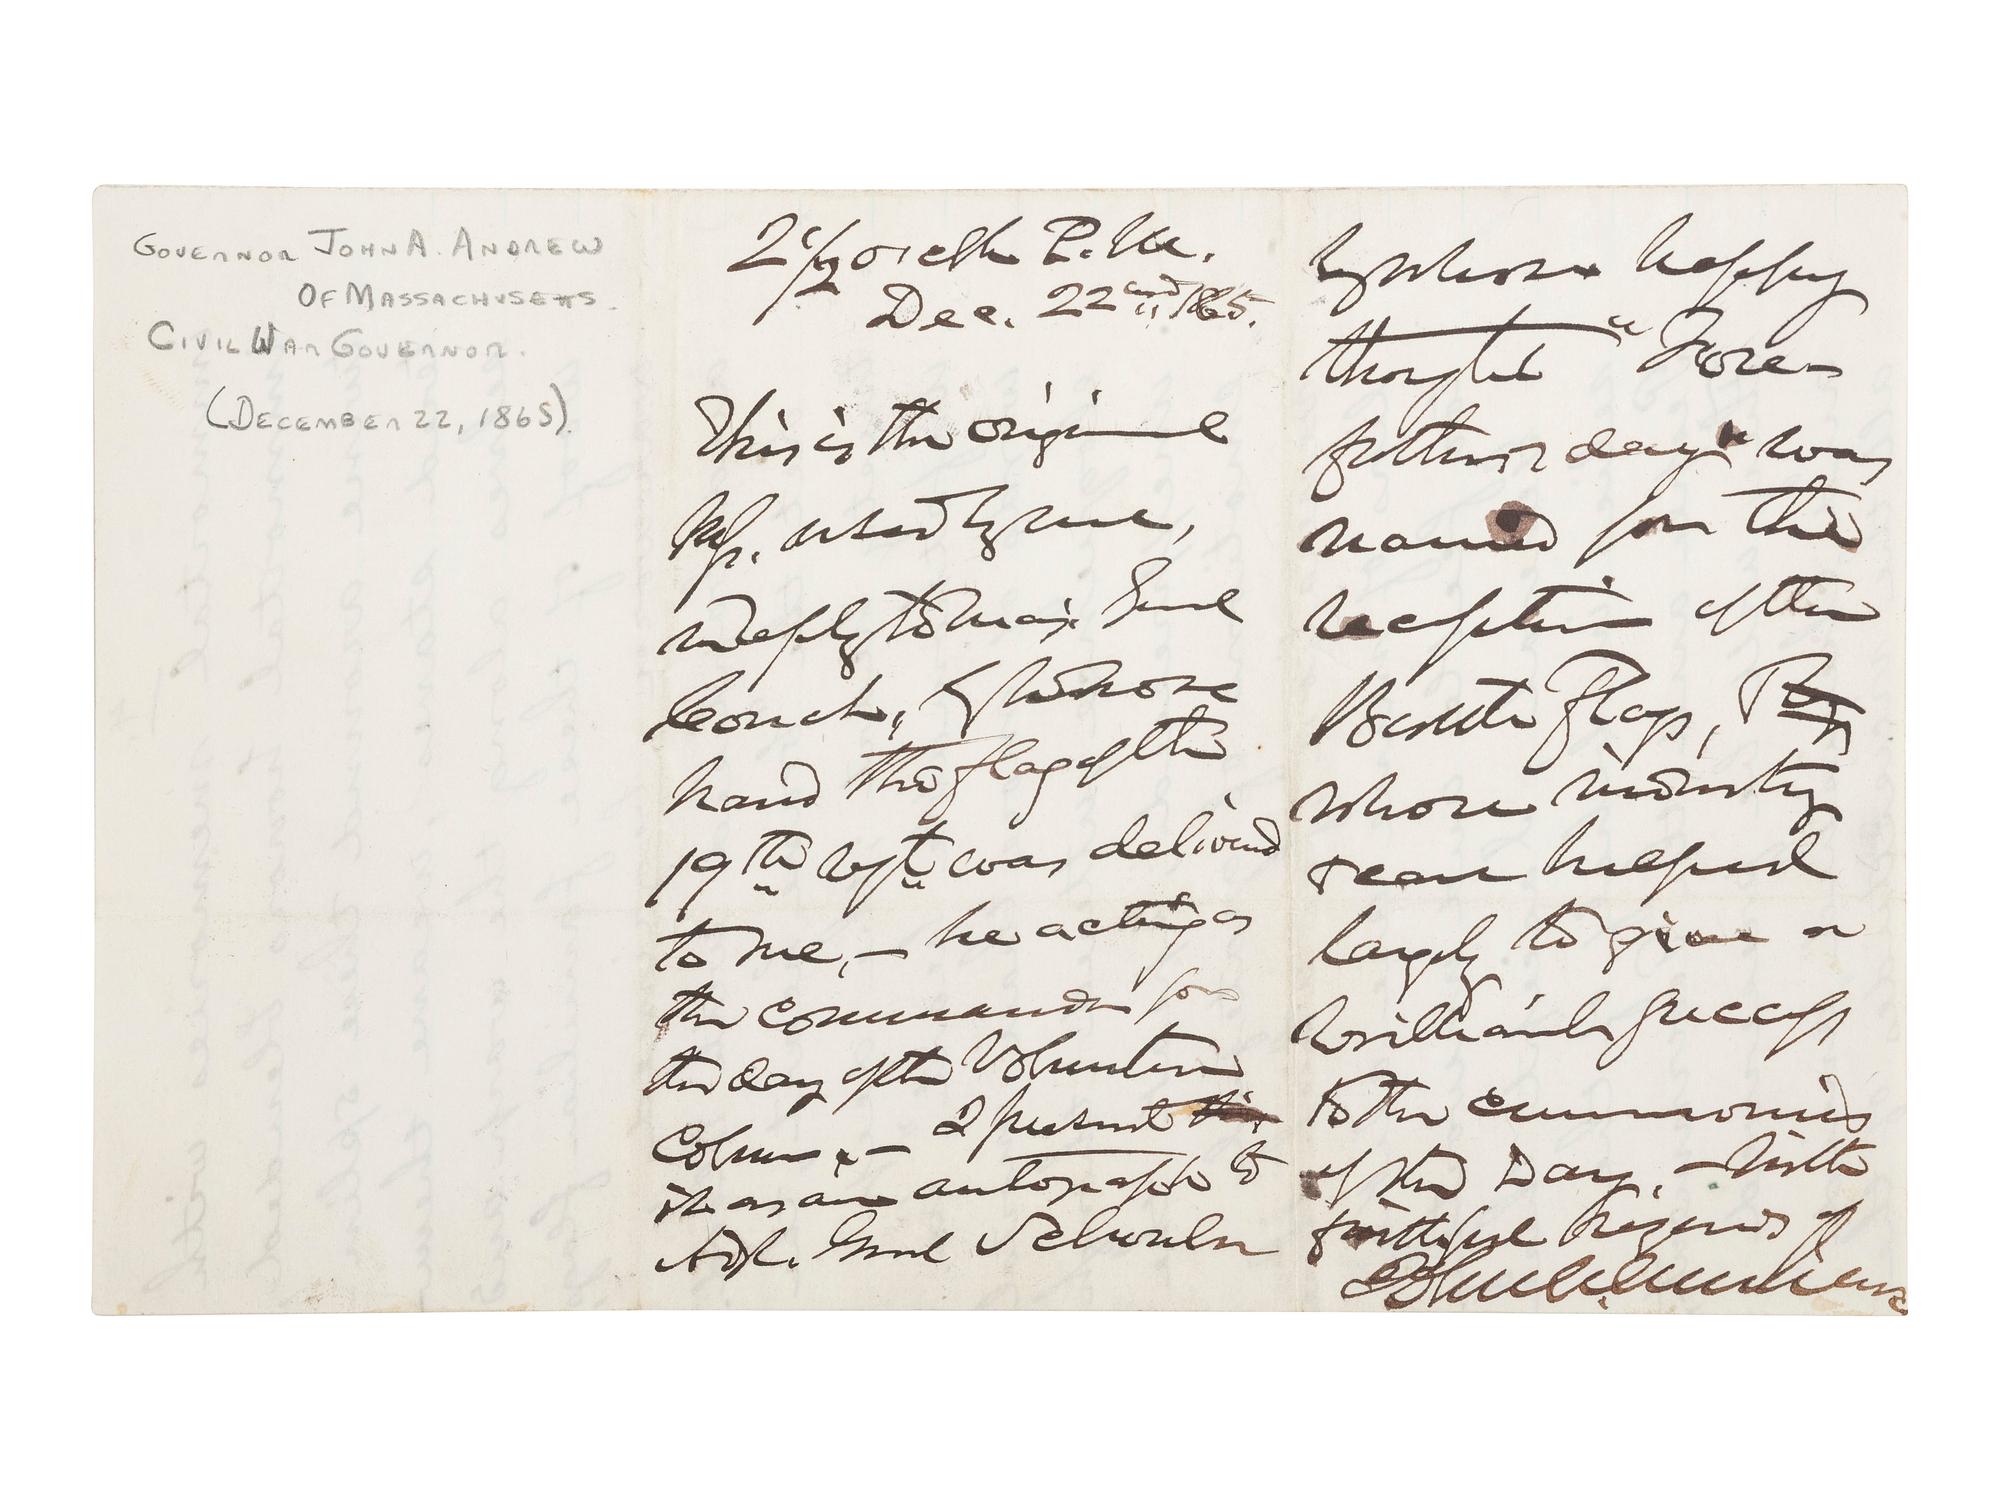 Governor John A. Andrew
Of Massachusetts.
Civil War Governor.
(December 22, 1865).
2 1/2 o'clk P.M.
Dec. 22nd, 1865.
This is the original
Mp. used by me,
in reply to Maj. Genl
Couch, by whose
hand the flag of the
19th regt was delivered
to me, — he acting as
the commander for
the day of the Volunteer
Column. — I present
it as an autograph to
Adj. Genl Schouler
by whose happy
thought "Fore-
fathers day" was
named for the
reception of the
Battle Flags,
whose industry
helped
largely to give a
brilliant success
to the ceremonies
of the Day. — With
faithful regards of